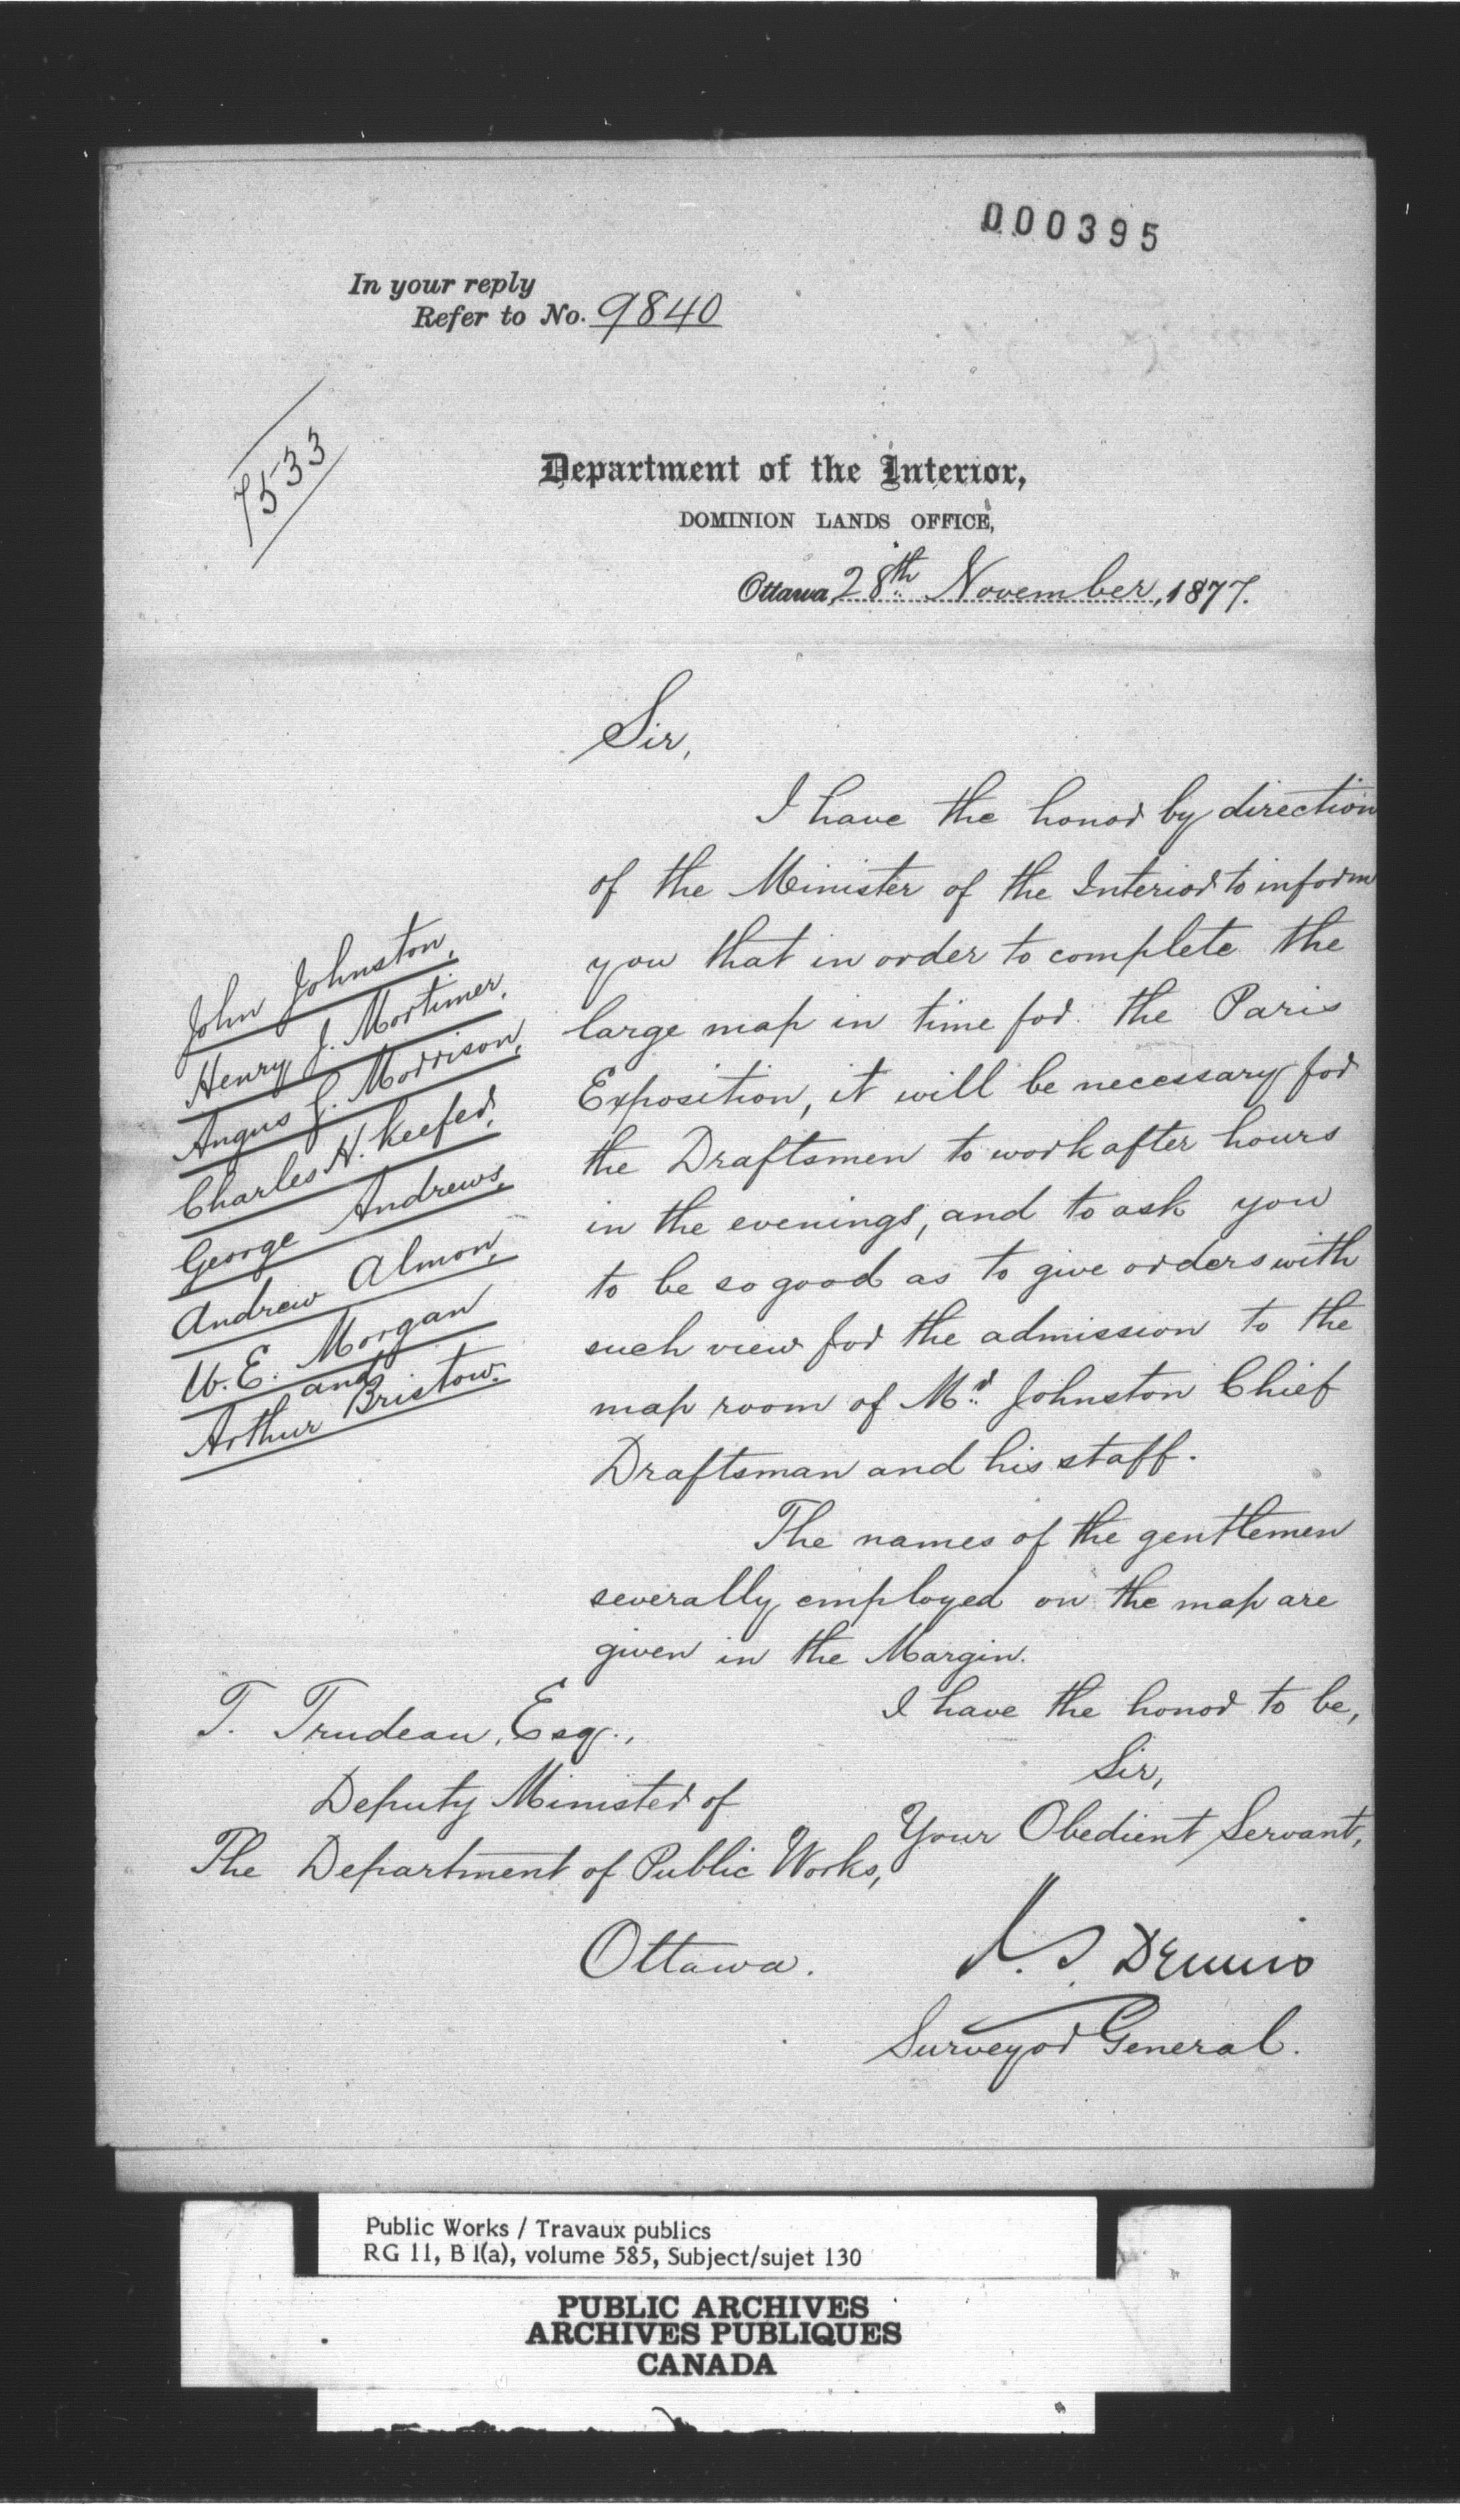 000395
In your reply
Refer to No. 9840
7533
Department of the Interior,
DOMINION LANDS OFFICE,
Ottawa, 28th November, 1877.
Sir,
I have the honor by direction
of the Minister of the Interior to inform
you that in order to complete the
large map in time for the Paris
Exposition, it will be necessary for
the Draftsmen to work after hours
in the evenings, and to ask you
to be so good as to give orders with
such view for the admission to the
map room of Mr. Johnston Chief
Draftsman and his staff.
The names of the gentlemen
severally employed on the map are
given in the Margin.
John Johnston,
Henry J. Mortimer,
Angus G. Morrison,
Charles H. Keefer,
George Andrews,
Andrew Almon,
W. E. Morgan
and
Arthur Bristow.
I have the honor to be,
Sir,
Your Obedient Servant,
J. S. Dennis
Surveyor General.
T. Trudeau, Esq.,
Deputy Minister of
The Department of Public Works,
Ottawa.
Public Works / Travaux publics
RG 11, B 1(a), volume 585, Subject/sujet 130
PUBLIC ARCHIVES
ARCHIVES PUBLIQUES
CANADA